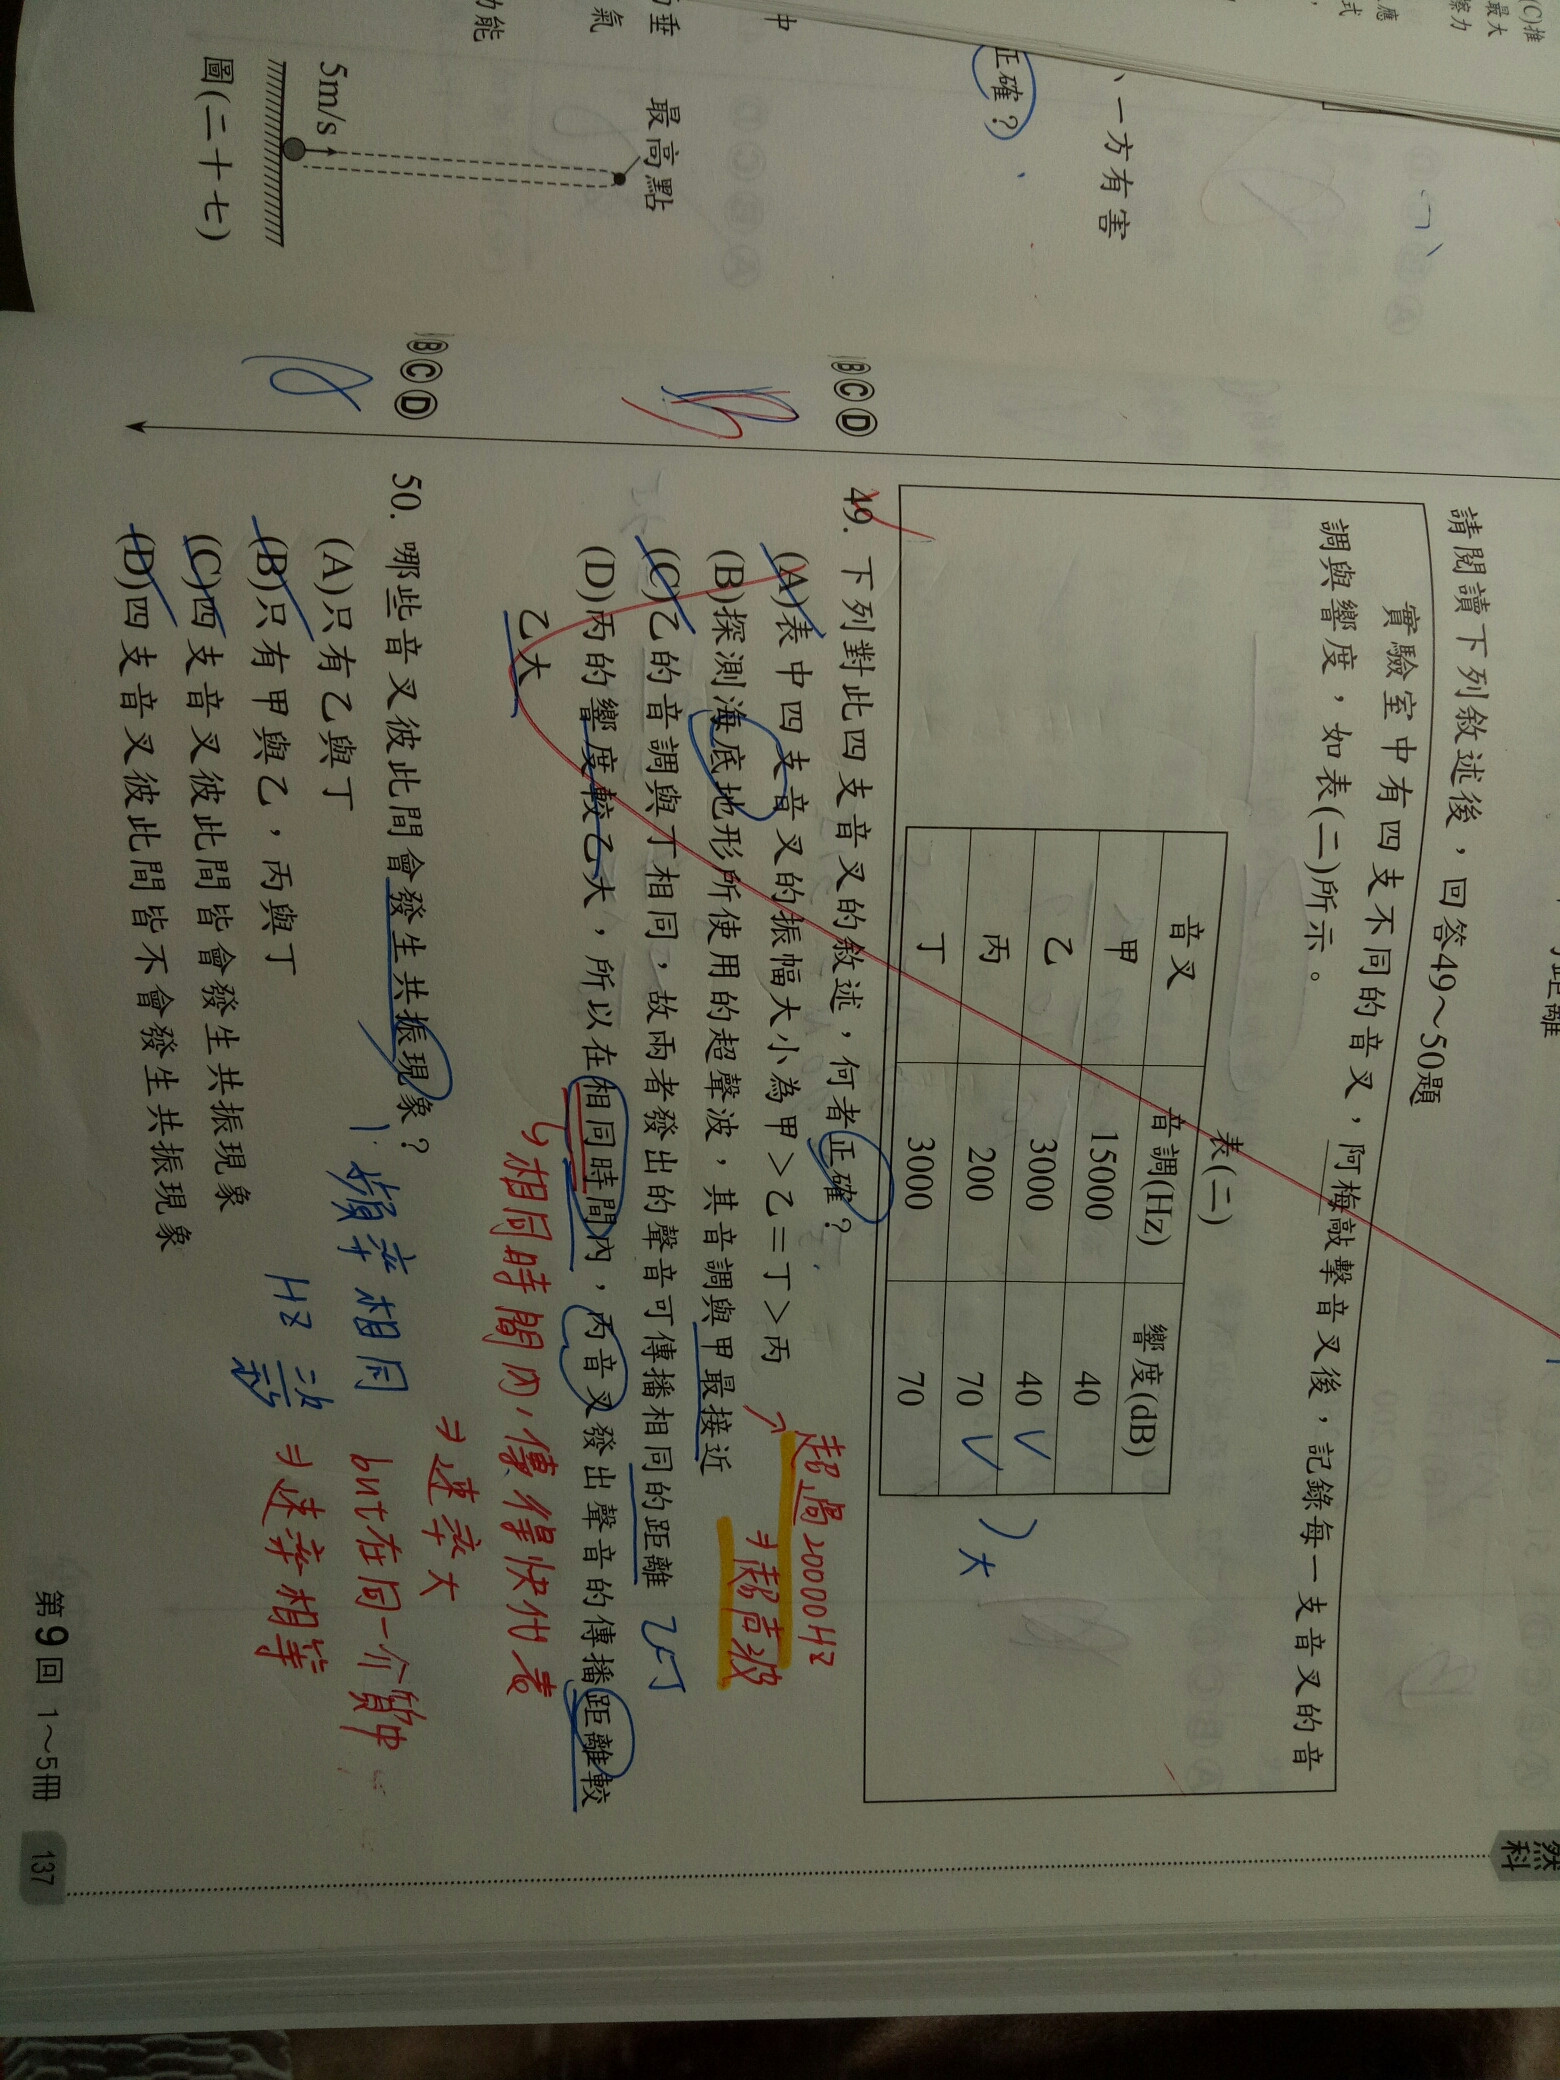 (C)推
最大
擦力
應
式
、一方有害
正確？
中
垂
氣
功能
最高點
5m/s
圖(二十七)
然
科
距離
請閱讀下列敘述後，回答49～50題
實驗室中有四支不同的音叉，阿梅敲擊音叉後，記錄每一支音叉的音
調與響度，如表(二)所示。
表(二)
音叉 音調(Hz) 響度(dB)
甲 15000 40
乙 3000 40
丙 200 70
丁 3000 70
大
ⒷⒸⒹ
49. 下列對此四支音叉的敘述，何者正確？
(A)表中四支音叉的振幅大小為甲＞乙＝丁＞丙
超過20000Hz
⇒超声波
(B)探測海底地形所使用的超聲波，其音調與甲最接近
(C)乙的音調與丁相同，故兩者發出的聲音可傳播相同的距離
乙<丁
(D)丙的響度較乙大，所以在相同時間內，丙音叉發出聲音的傳播距離較
乙大
↳相同時間內，傳得快代表
⇒速率大
ⒷⒸⒹ
50. 哪些音叉彼此間會發生共振現象？
頻率相同
but在同一介質中
(A)只有乙與丁
Hz
⇒速率相等
(B)只有甲與乙，丙與丁
(C)四支音叉彼此間皆會發生共振現象
(D)四支音叉彼此間皆不會發生共振現象
第9回 1～5冊
137